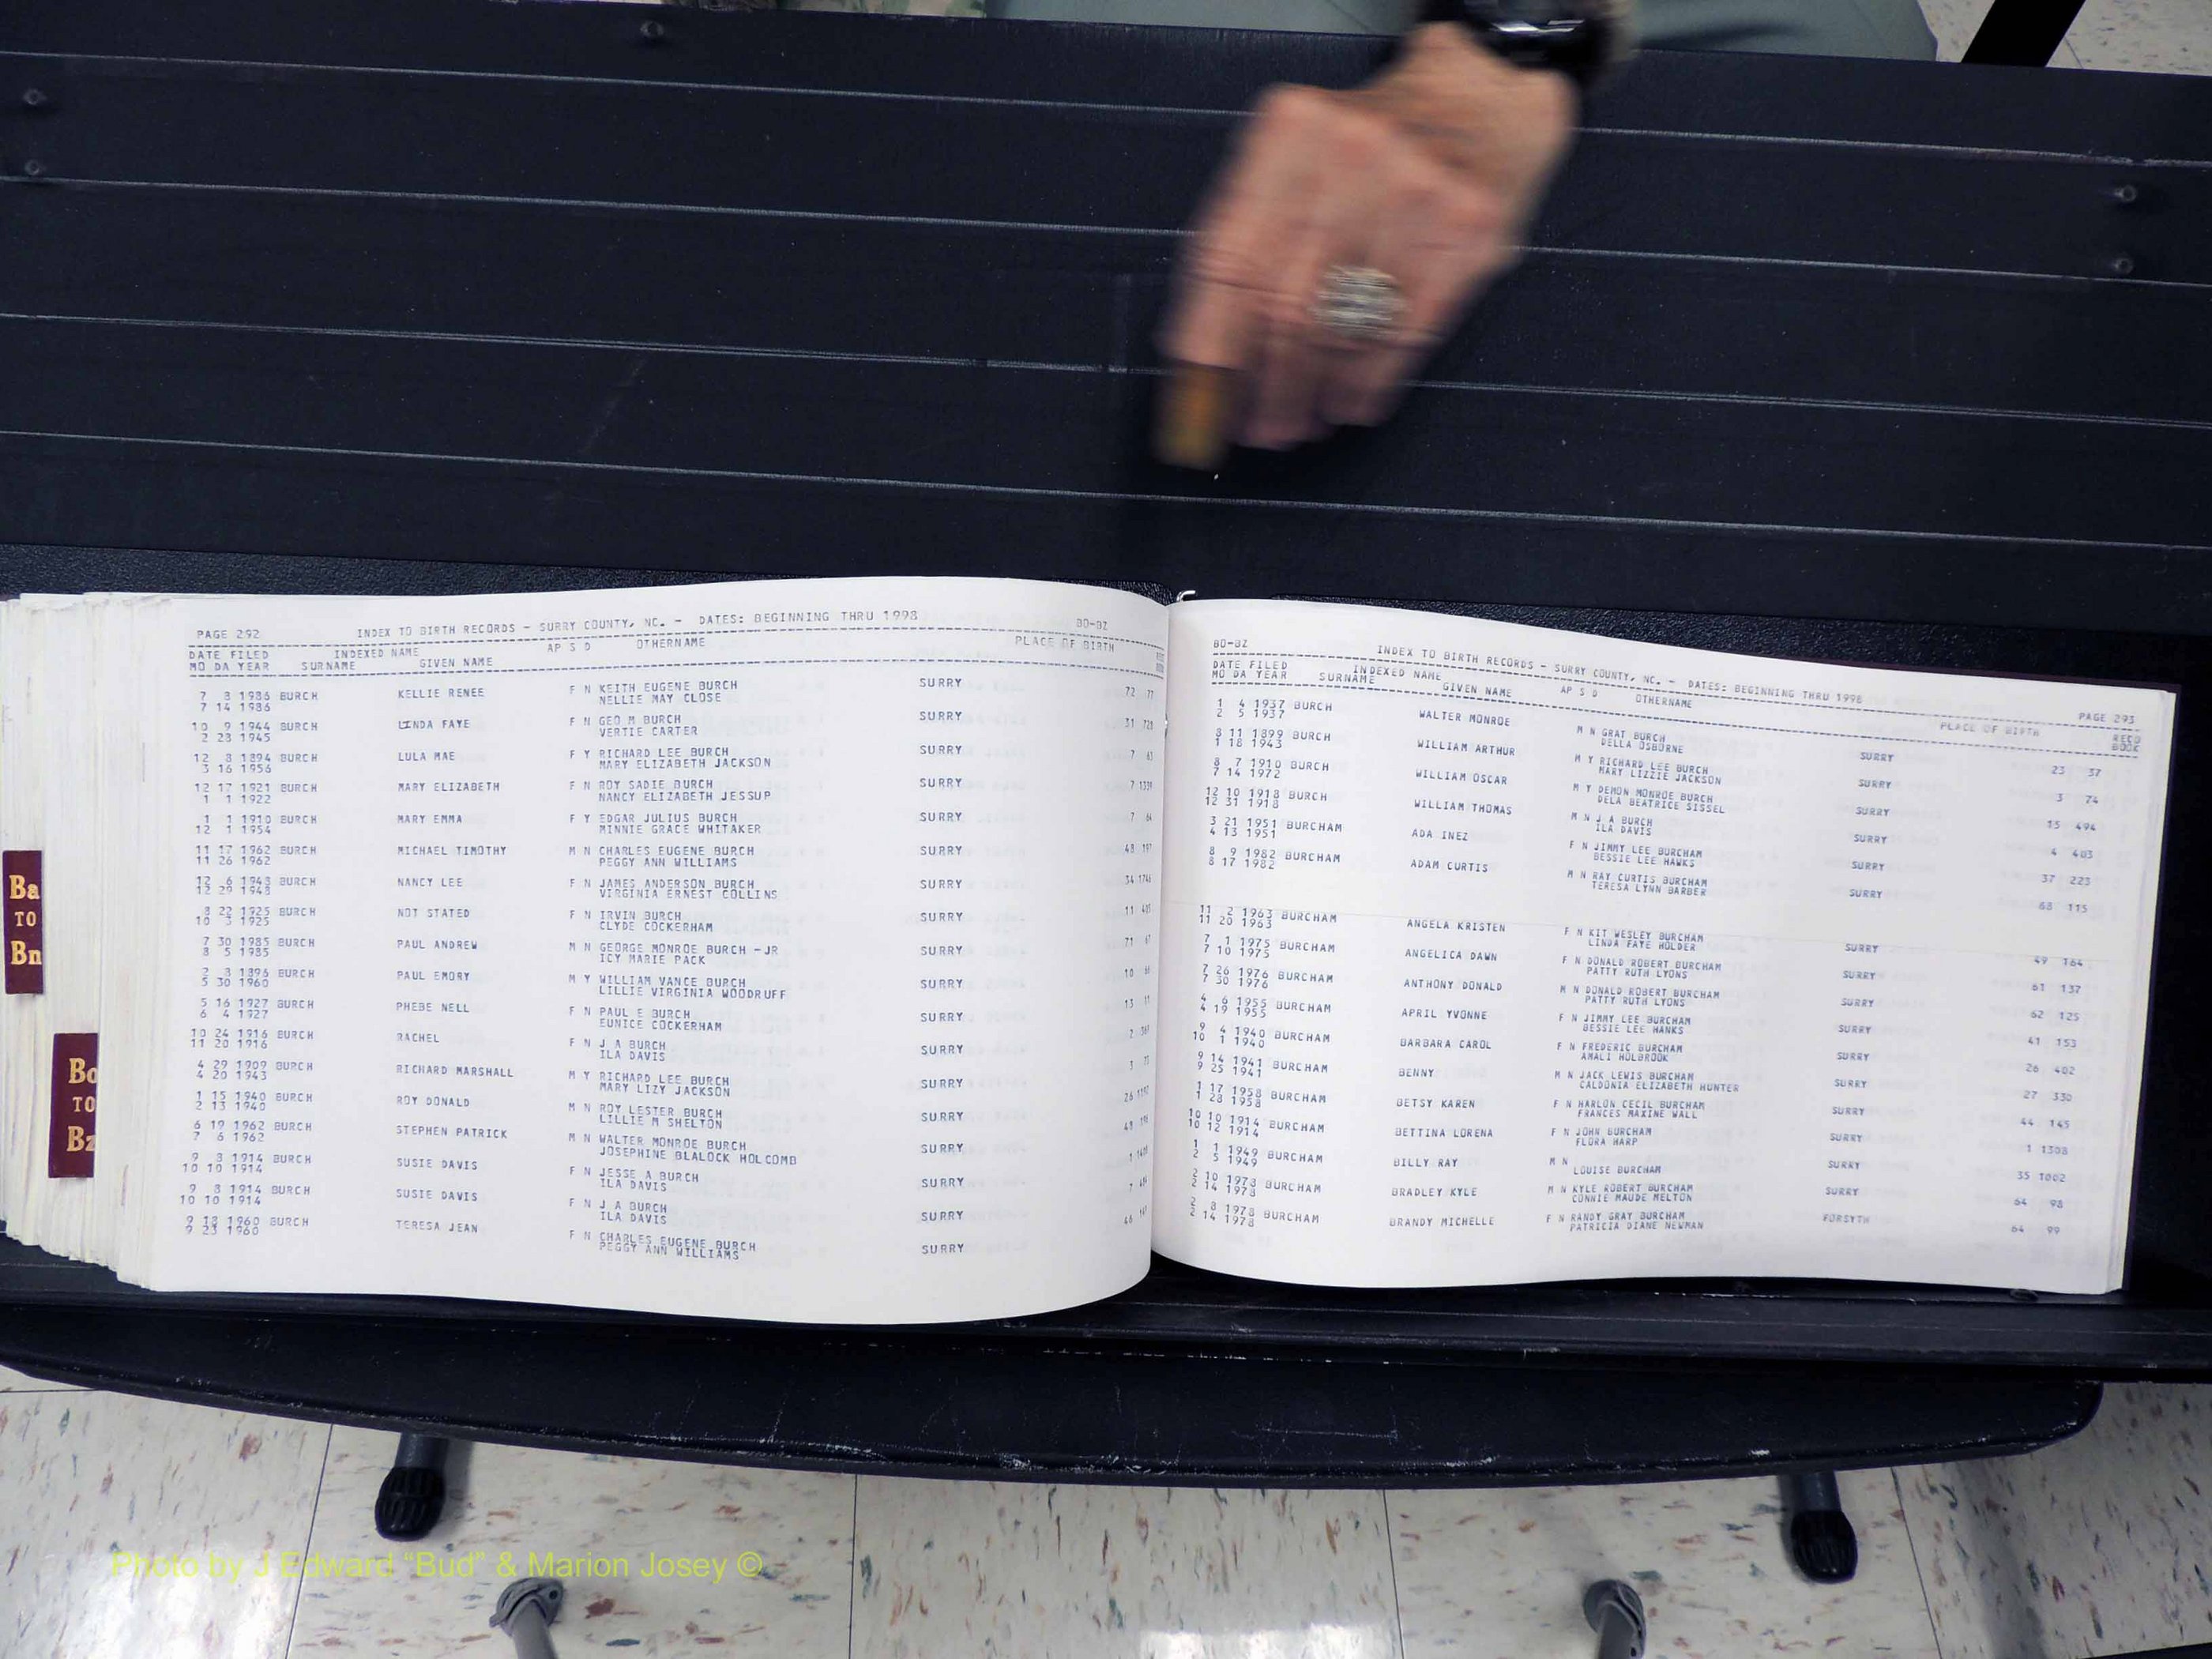 PAGE 292 INDEX TO BIRTH RECORDS - SURRY COUNTY, NC. - DATES: BEGINNING THRU 1998 BO-BZ
DATE FILED INDEXED NAME AP S D OTHERNAME PLACE OF BIRTH
MO DA YEAR SURNAME GIVEN NAME
7 8 1986 BURCH KELLIE RENEE F N KEITH EUGENE BURCH SURRY 72 77
7 14 1986 NELLIE MAY CLOSE
10 9 1944 BURCH LINDA FAYE F N GEO M BURCH SURRY 31 728
2 23 1945 VERTIE CARTER
12 8 1894 BURCH LULA MAE F Y RICHARD LEE BURCH SURRY 7 63
3 16 1956 MARY ELIZABETH JACKSON
12 17 1921 BURCH MARY ELIZABETH F N ROY SADIE BURCH SURRY 7 1339
1 1 1922 NANCY ELIZABETH JESSUP
1 1 1910 BURCH MARY EMMA F Y EDGAR JULIUS BURCH SURRY 7 64
12 1 1954 MINNIE GRACE WHITAKER
11 17 1962 BURCH MICHAEL TIMOTHY M N CHARLES EUGENE BURCH SURRY 48 197
11 26 1962 PEGGY ANN WILLIAMS
12 6 1948 BURCH NANCY LEE F N JAMES ANDERSON BURCH SURRY 34 1746
12 29 1948 VIRGINIA ERNEST COLLINS
8 22 1925 BURCH NOT STATED F N IRVIN BURCH SURRY 11
10 3 1925 CLYDE COCKERHAM
7 30 1985 BURCH PAUL ANDREW M N GEORGE MONROE BURCH -JR SURRY 71
8 5 1985 ICY MARIE PACK
2 3 1896 BURCH PAUL EMORY M Y WILLIAM VANCE BURCH SURRY 10
5 30 1960 LILLIE VIRGINIA WOODRUFF
5 16 1927 BURCH PHEBE NELL F N PAUL E BURCH SURRY 13
6 4 1927 EUNICE COCKERHAM
10 24 1916 BURCH RACHEL F N J A BURCH SURRY 2
11 20 1916 ILA DAVIS
4 29 1909 BURCH RICHARD MARSHALL M Y RICHARD LEE BURCH SURRY
4 20 1943 MARY LIZY JACKSON
1 15 1940 BURCH ROY DONALD M N ROY LESTER BURCH SURRY 26
2 13 1940 LILLIE M SHELTON
6 19 1962 BURCH STEPHEN PATRICK M N WALTER MONROE BURCH SURRY 48
7 6 1962 JOSEPHINE BLALOCK HOLCOMB
9 8 1914 BURCH SUSIE DAVIS F N JESSE A BURCH SURRY 1
10 10 1914 ILA DAVIS
9 8 1914 BURCH SUSIE DAVIS F N J A BURCH SURRY
10 10 1914 ILA DAVIS
9 13 1960 BURCH TERESA JEAN F N CHARLES EUGENE BURCH SURRY 46
9 23 1960 PEGGY ANN WILLIAMS
BO-BZ INDEX TO BIRTH RECORDS - SURRY COUNTY, NC. - DATES: BEGINNING THRU 1998 PAGE 293
DATE FILED INDEXED NAME AP S D OTHERNAME PLACE OF BIRTH RECD
MO DA YEAR SURNAME GIVEN NAME BOOK
1 4 1937 BURCH WALTER MONROE M N GRAT BURCH SURRY 23 37
2 5 1937 DELLA OSBORNE
8 11 1899 BURCH WILLIAM ARTHUR M Y RICHARD LEE BURCH SURRY 3 74
1 18 1943 MARY LIZZIE JACKSON
8 7 1910 BURCH WILLIAM OSCAR M Y DEMON MONROE BURCH SURRY 15 494
7 14 1972 DELA BEATRICE SISSEL
12 10 1918 BURCH WILLIAM THOMAS M N J A BURCH SURRY 4 403
12 31 1918 ILA DAVIS
3 21 1951 BURCHAM ADA INEZ F N JIMMY LEE BURCHAM SURRY 37 223
4 13 1951 BESSIE LEE HAWKS
8 9 1982 BURCHAM ADAM CURTIS M N RAY CURTIS BURCHAM SURRY 68 115
8 17 1982 TERESA LYNN BARBER
11 2 1963 BURCHAM ANGELA KRISTEN F N KIT WESLEY BURCHAM SURRY 49 164
11 20 1963 LINDA FAYE HOLDER
7 1 1975 BURCHAM ANGELICA DAWN F N DONALD ROBERT BURCHAM SURRY 61 137
7 10 1975 PATTY RUTH LYONS
7 26 1976 BURCHAM ANTHONY DONALD M N DONALD ROBERT BURCHAM SURRY 62 125
7 30 1976 PATTY RUTH LYONS
4 6 1955 BURCHAM APRIL YVONNE F N JIMMY LEE BURCHAM SURRY 41 153
4 19 1955 BESSIE LEE HANKS
9 4 1940 BURCHAM BARBARA CAROL F N FREDERIC BURCHAM SURRY 26 402
10 1 1940 AMALI HOLBROOK
9 14 1941 BURCHAM BENNY M N JACK LEWIS BURCHAM SURRY 27 330
9 25 1941 CALDONIA ELIZABETH HUNTER
1 17 1958 BURCHAM BETSY KAREN F N HARLON CECIL BURCHAM SURRY 44 145
1 28 1958 FRANCES MAXINE WALL
10 10 1914 BURCHAM BETTINA LORENA F N JOHN BURCHAM SURRY 1 1308
10 12 1914 FLORA HARP
1 1 1949 BURCHAM BILLY RAY M N SURRY 35 1002
2 5 1949 LOUISE BURCHAM
2 10 1978 BURCHAM BRADLEY KYLE M N KYLE ROBERT BURCHAM SURRY 64 98
2 14 1978 CONNIE MAUDE MELTON
2 8 1978 BURCHAM BRANDY MICHELLE F N RANDY GRAY BURCHAM FORSYTH 64 99
2 14 1978 PATRICIA DIANE NEWMAN
Ba
TO
Bn
Bo
TO
Bz
Photo by J Edward “Bud” & Marion Josey ©